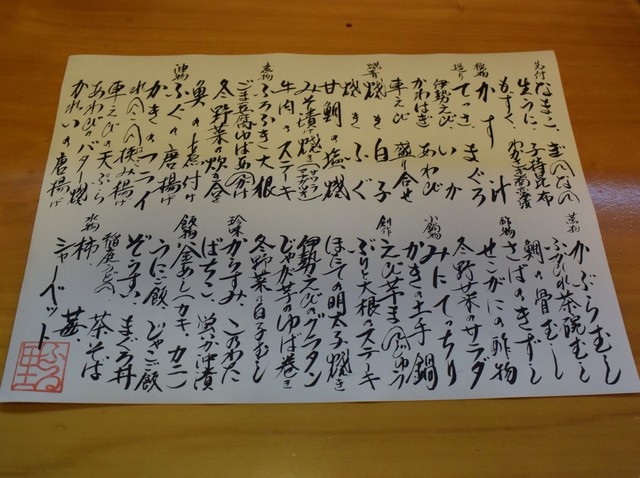 先付
なまこ、このわた
生うに、子持昆布
もずく、わかさぎ南蛮漬
椀物
かす汁
造り
てっさ、まぐろ
伊勢えび、いか
かわはぎ、あわび
車えび、盛り合せ
焼肴
焼き白子
焼きふぐ
甘鯛の塩焼
みそ漬け焼き
牛肉のステーキ
煮物
ふろふき大根
ごま豆腐ゆばあんかけ
冬野菜の炊き合せ
魚のあら煮付け
油物
ふぐの唐揚げ
かきのフライ
れんこんの挟み揚げ
車えびの天ぷら
あわびのバター焼
かれいの唐揚げ
蒸物
かぶらむし
ふかひれ茶碗むし
鯛の骨むし
酢物
さばのきずし
せこがにの酢物
冬野菜のサラダ
小鍋
みにてっちり
かきの土手鍋
創作
えび芋まんじゅう
ぶりと大根のステーキ
ほたての明太子焼き
伊勢えびのグラタン
じゃが芋のゆば巻き
冬野菜の白子むし
珍味
からすみ、このわた
ばちこ、蛍いか沖漬
飯物
釜めし(カキ、カニ
うに飯、じゃこ飯
ぞうすい、まぐろ丼
稲庭うどん、茶そば
水物
柿、苺、
シャーベット